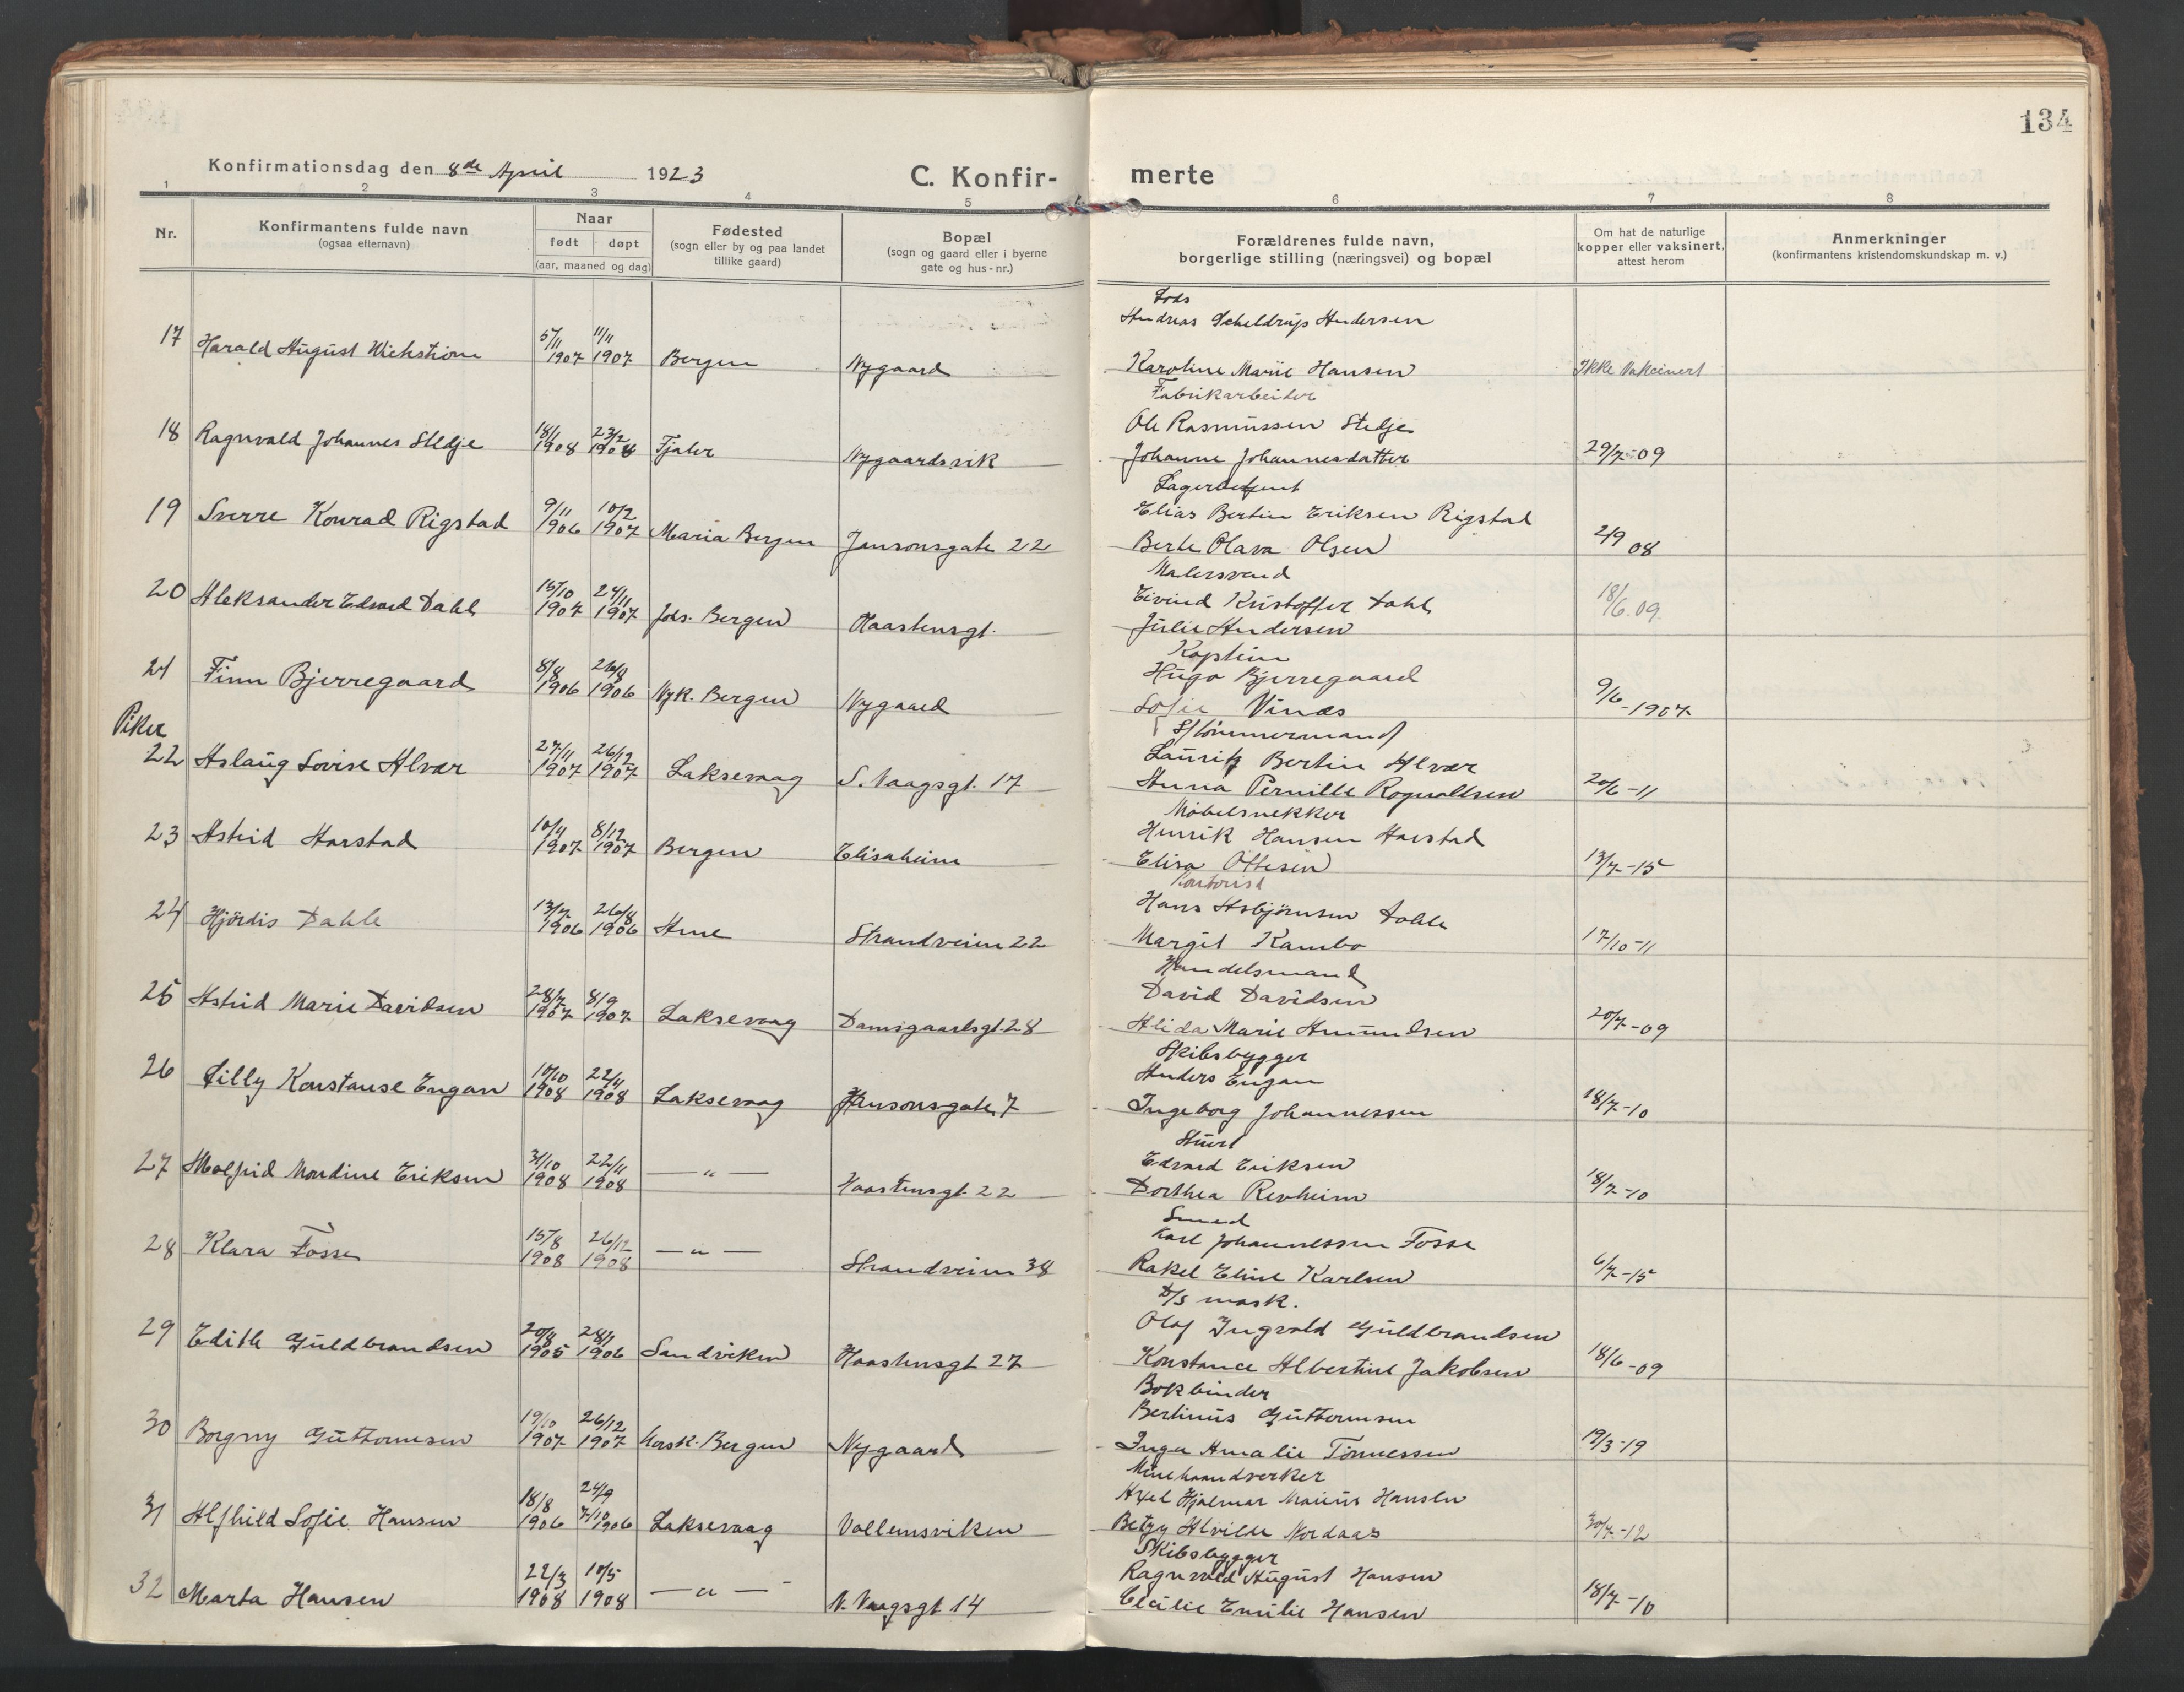 134
Konfirmationsdag den 8de April 1923
C. Konfir- merte
1 2 3 4 5 6 7 8
Nr.
Konfirmantens fulde navn
(ogsaa efternavn)
Naar
født døpt
(aar, maaned og dag)
Fødested
(sogn eller by og paa landet
tillike gaard)
Bopæl
(sogn og gaard eller i byerne
gate og hus-nr.)
Forældrenes fulde navn,
borgerlige stilling (næringsvei) og bopæl
Om hat de naturlige
kopper eller vaksinert,
attest herom
Anmerkninger
(konfirmantens kristendomskundskap m. v.)
Lods
Andreas Scheldrup Andersen
17 Harald August Wickstrøm 5/11 1907 11/11 1907 Bergen Nygaard
Karoline Marie Hansen Ikke Vakcinert
Fabrikarbeider
Ole Rasmussen Stedje
18 Ragnvald Johannes Stedje 18/1 1908 23/2 1908 Fjaler Nygaardsvik
Johanne Johannesdatter 29/7-09
Lagerbetjent
Elias Bertin Eriksen Rigstad
19 Sverre Konrad Rigstad 9/11 1906 10/2 1907 Maria Bergen Jansonsgate 22
Berte Olava Olsen 2/9 08
Malersvend
Eivind Kristoffer Dahl
20 Aleksander Edvard Dahl 15/10 1907 24/11 1907 Johs. Bergen Haastensgt.
Julie Andersen 18/6.09
Kaptein
Hugo Bjerregaard
21 Finn Bjerregaard 8/8 1906 26/8 1906 Nyk. Bergen Nygaard
Sofie Vinæs 9/6-1907
Piker
Tømmermand
Lauritz Bertin Alvær
22 Aslaug Lovise Alvær 27/11 1907 26/12 1907 Laksevaag S. Vaagsgt. 17
Anna Pernille Rognaldsen 20/6-11
Møbelsnekker
Henrik Hansen Harstad
23 Astrid Harstad 10/11 1907 8/12 1907 Bergen Elisaheim
Elisa Ottesen 13/7-15
Kontorist
Hans Asbjørnsen Dahle
24 Hjördis Dahle 13/7 1906 26/8 1906 Arne Strandveien 22
Margit Kambo 17/10-11
Handelsmand
David Davidsen
25 Astrid Marie Davidsen 28/7 1907 8/9 1907 Laksevaag Damsgaardsgt. 28
Alida Marie Amundsen 20/7-09
Skibsbygger
Anders Engan
26 Lilly Konstanse Engan 10/10 1908 22/11 1908 Laksevaag Jansonsgate 7
Ingeborg Johannessen 18/7-10
Stuert
Edvard Eriksen
27 Målfrid Mondine Eriksen 31/10 1908 22/11 1908 — " — Haastensgt. 22
Dorthea Revheim 18/7-10
Smed
Karl Johannessen Fosse
28 Klara Fosse 15/8 1908 26/12 1908 — " — Strandveien 38
Rakel Elise Karlsen 6/7-15
D/S mask.
Olaf Ingvald Guldbrandsen
29 Edith Guldbrandsen 20/8 1905 28/1 1906 Sandviken Haastensgt 27
Konstance Albertine Jakobsen 18/6-09
Bokbinder
Bertinus Guttormsen
30 Borgny Guttormsen 19/10 1907 26/12 1907 Korsk. Bergen Nygaard
Inga Amalie Tønnessen 19/3-19
Minehaandverker
Axel Hjalmar Marius Hansen
31 Alfhild Sofie Hansen 18/8 1906 24/9 7/10 1906 Laksevaag Vallemsviken
Betzy Alvilde Nordaas 30/7-12
Skibsbygger
Ragnvald August Hansen
32 Marta Hansen 22/3 1908 10/5 1908 — " — N. Vaagsgt 14
Cecilie Emilie Hansen 18/7-10